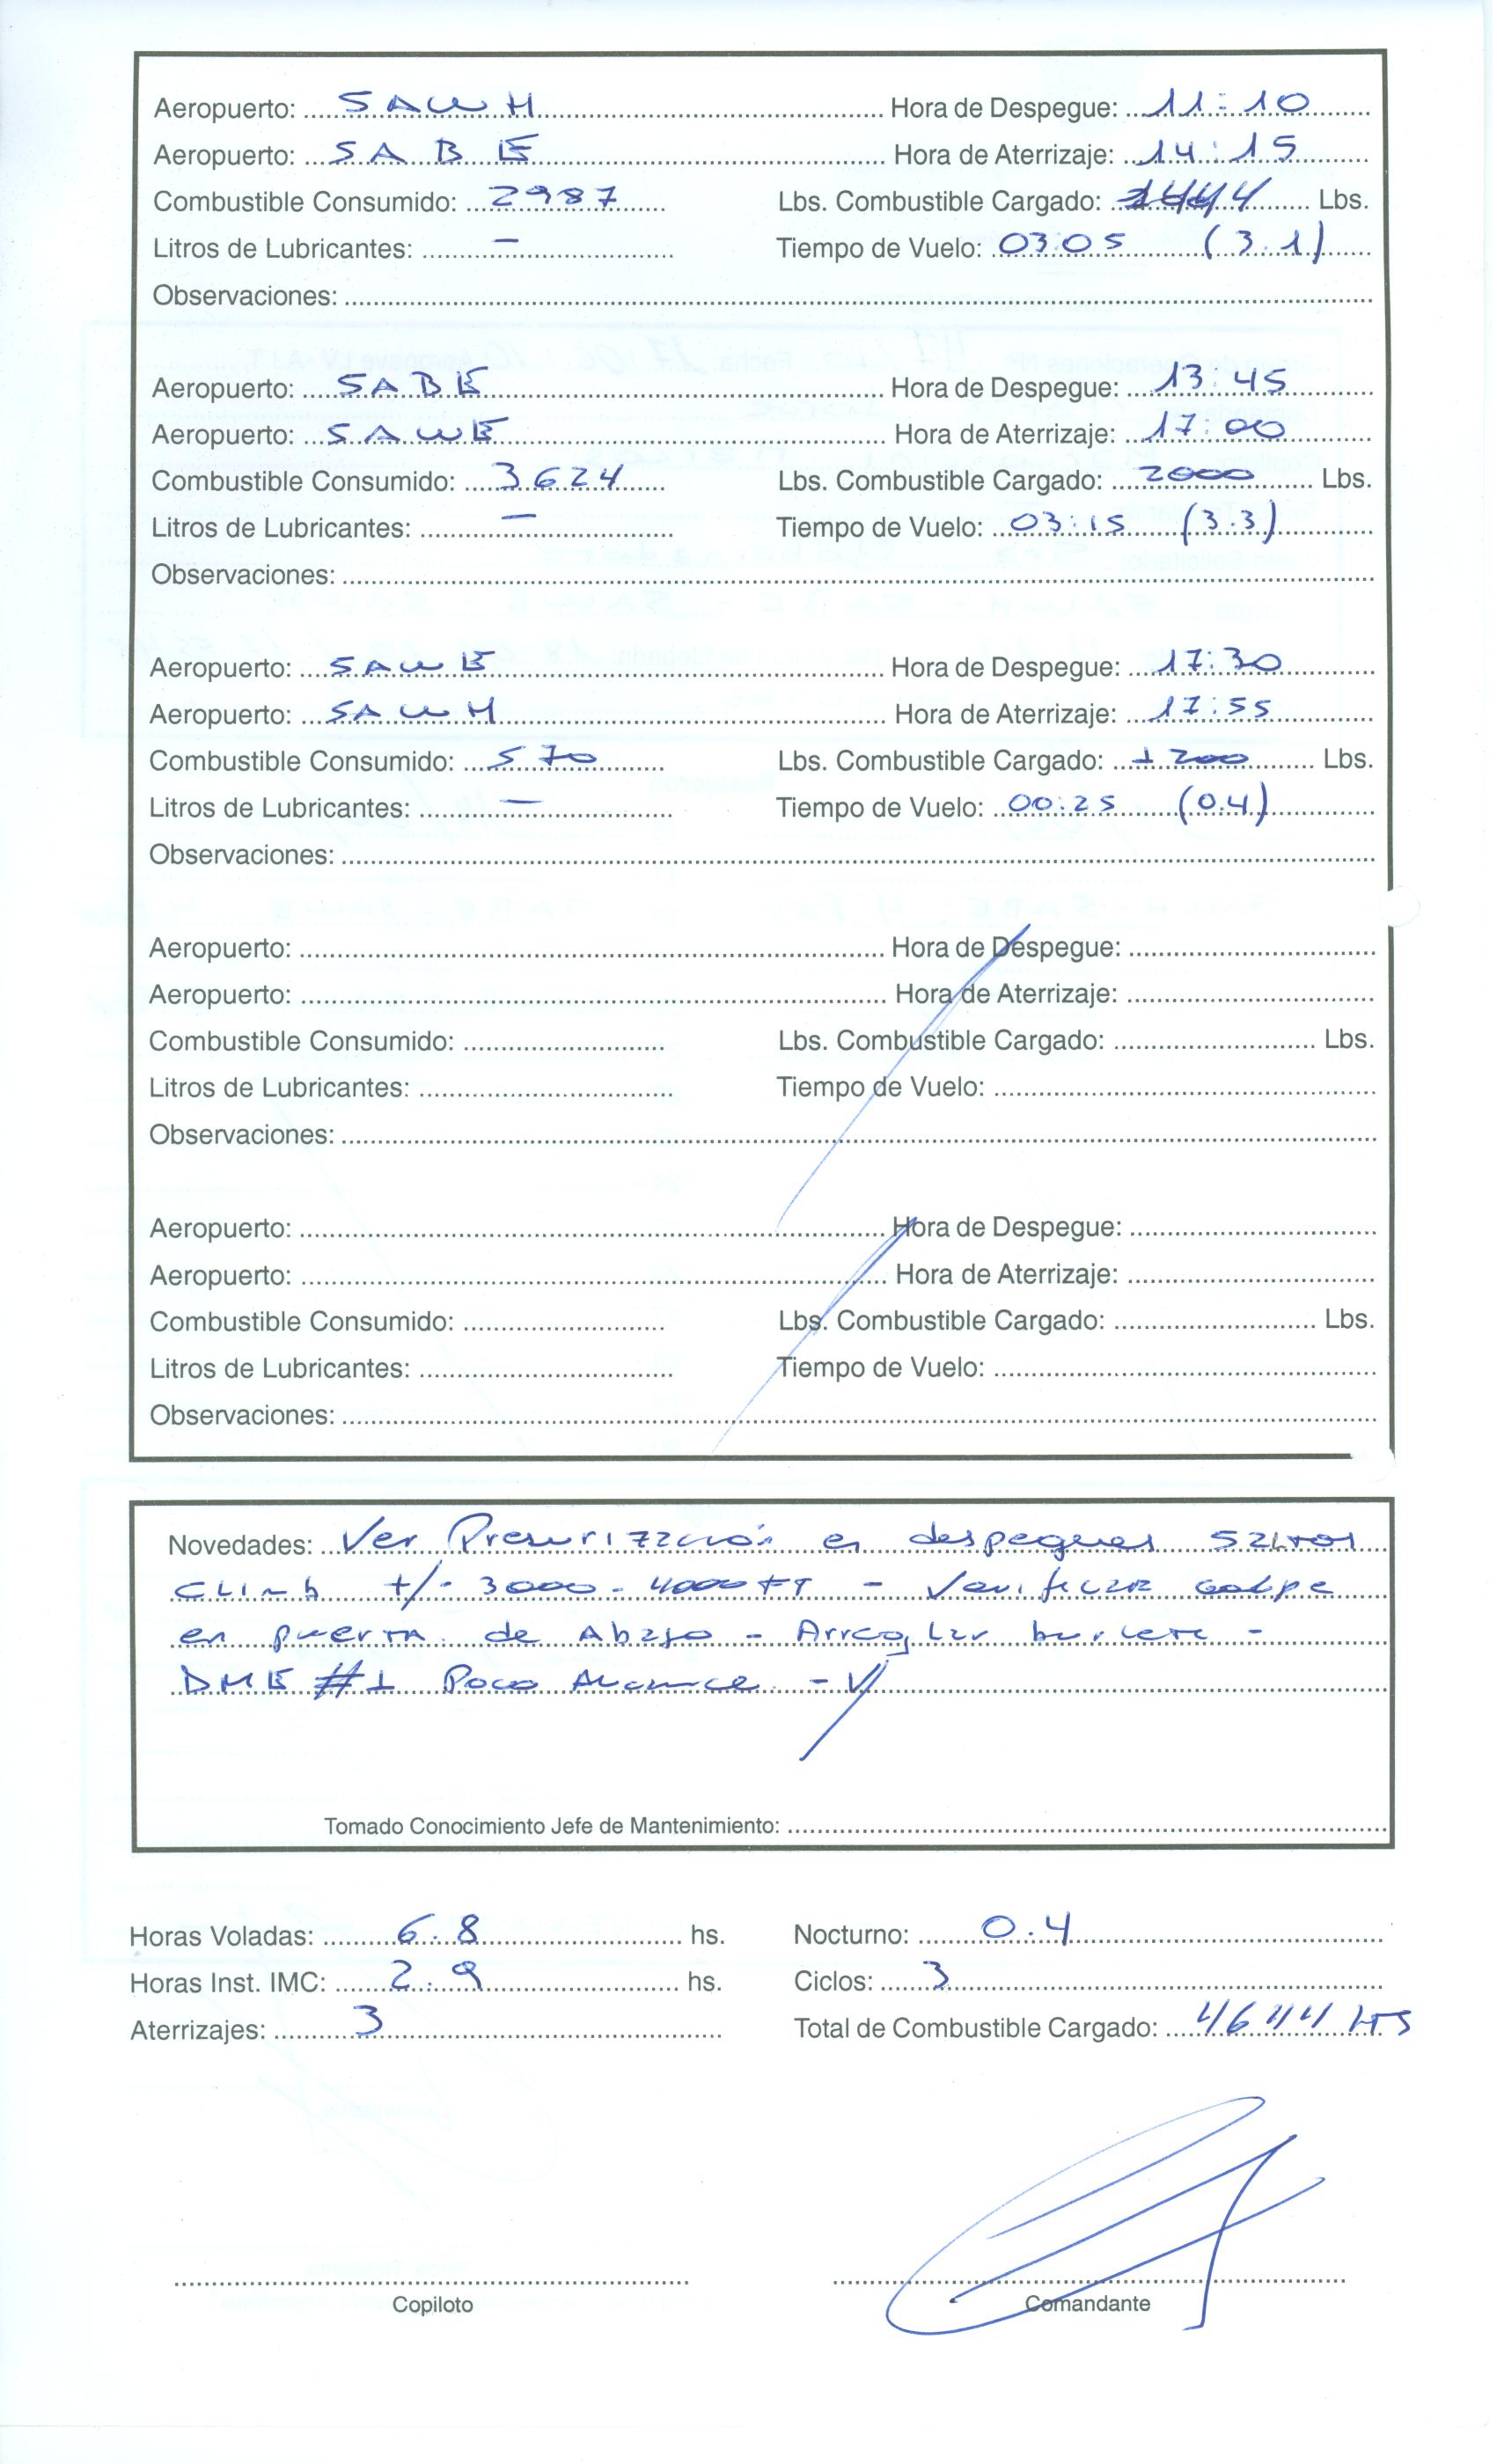 Aeropuerto: SAWH Hora de Despegue: 11:10
Aeropuerto: SABE Hora de Aterrizaje: 14:15
Combustible Consumido: 2987 Lbs. Combustible Cargado: 1444 Lbs.
Litros de Lubricantes: — Tiempo de Vuelo: 03:05 (3.1)
Observaciones:
Aeropuerto: SABE Hora de Despegue: 13:45
Aeropuerto: SAWE Hora de Aterrizaje: 17:00
Combustible Consumido: 3624 Lbs. Combustible Cargado: 2000 Lbs.
Litros de Lubricantes: — Tiempo de Vuelo: 03:15 (3.3)
Observaciones:
Aeropuerto: SAWE Hora de Despegue: 17:30
Aeropuerto: SAWH Hora de Aterrizaje: 17:55
Combustible Consumido: 570 Lbs. Combustible Cargado: 1200 Lbs.
Litros de Lubricantes: — Tiempo de Vuelo: 00:25 (0.4)
Observaciones:
Aeropuerto: Hora de Despegue:
Aeropuerto: Hora de Aterrizaje:
Combustible Consumido: Lbs. Combustible Cargado: Lbs.
Litros de Lubricantes: Tiempo de Vuelo:
Observaciones:
Aeropuerto: Hora de Despegue:
Aeropuerto: Hora de Aterrizaje:
Combustible Consumido: Lbs. Combustible Cargado: Lbs.
Litros de Lubricantes: Tiempo de Vuelo:
Observaciones:
Novedades: Ver Presurización en despegues saltos
Climb +/- 3000 - 4000 FT - Verificar golpe
en puerta de Abajo - Arreglar burlete -
DME #1 Poco Alcance -
Tomado Conocimiento Jefe de Mantenimiento:
Horas Voladas: 6.8 hs. Nocturno: 0.4
Horas Inst. IMC: 2.9 hs. Ciclos: 3
Aterrizajes: 3 Total de Combustible Cargado: 4644 LTS
Copiloto Comandante